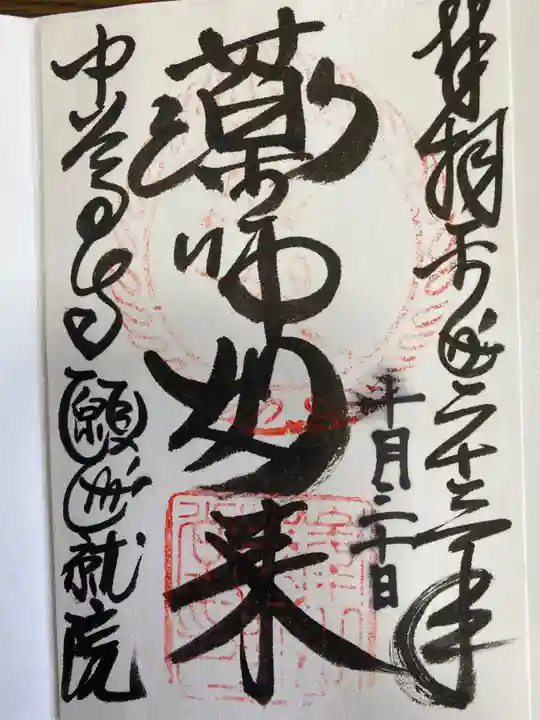 平成二十三年
十月二十日
薬師如来
中尊寺 願成就院